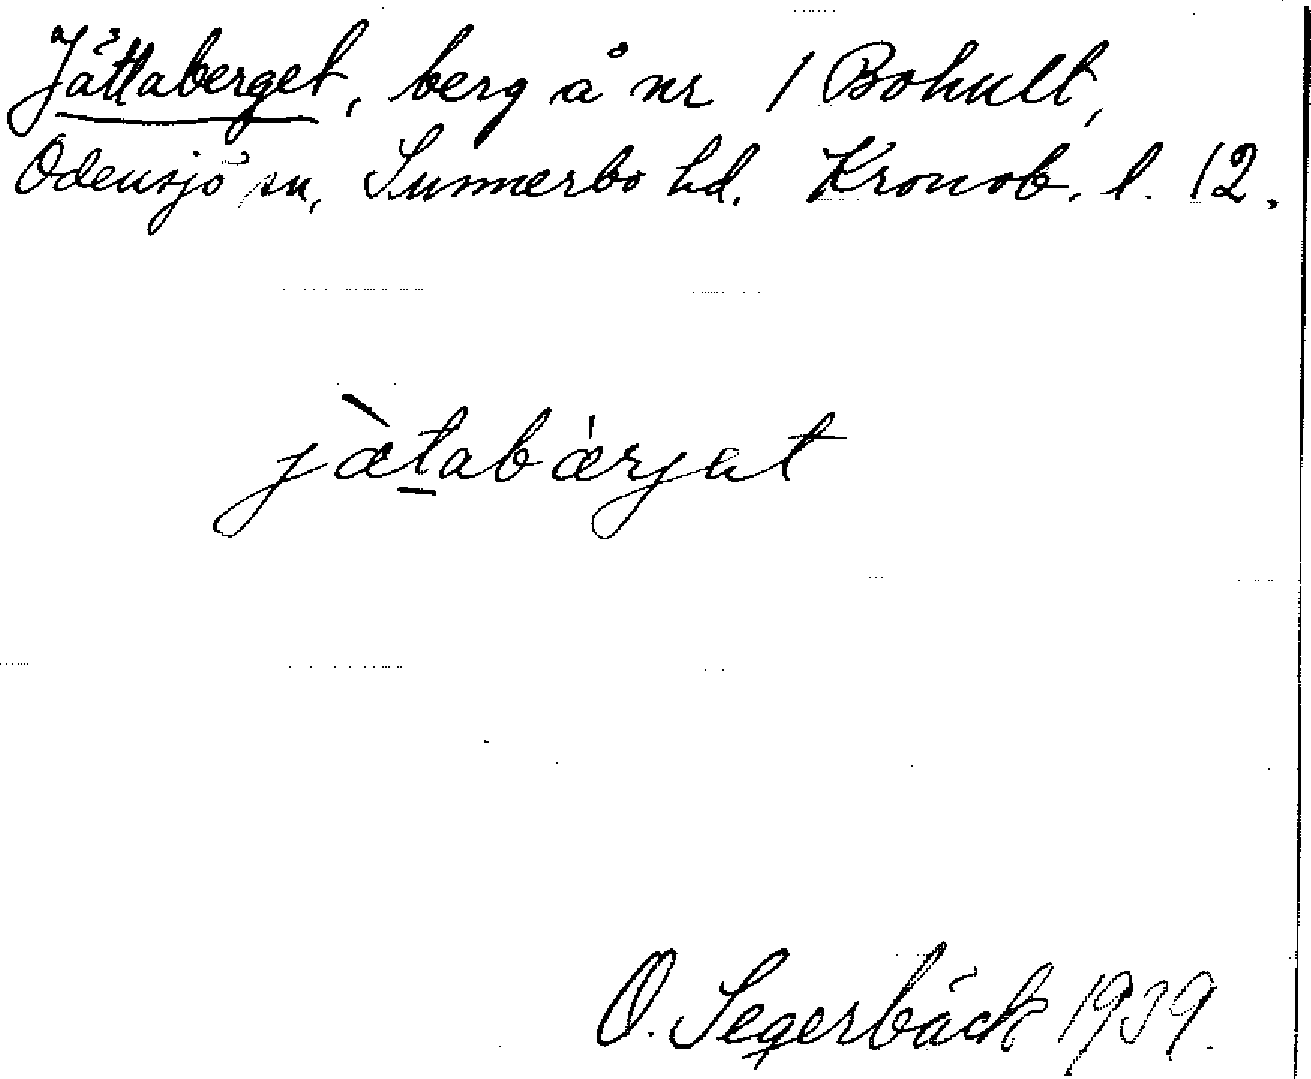 Jättaberget, berg å nr 1 Bohult,
Odensjö sn, Sunnerbo hd. Kronob. l. 12.
jæ̀tabærjat
O. Segerbäck 1939.